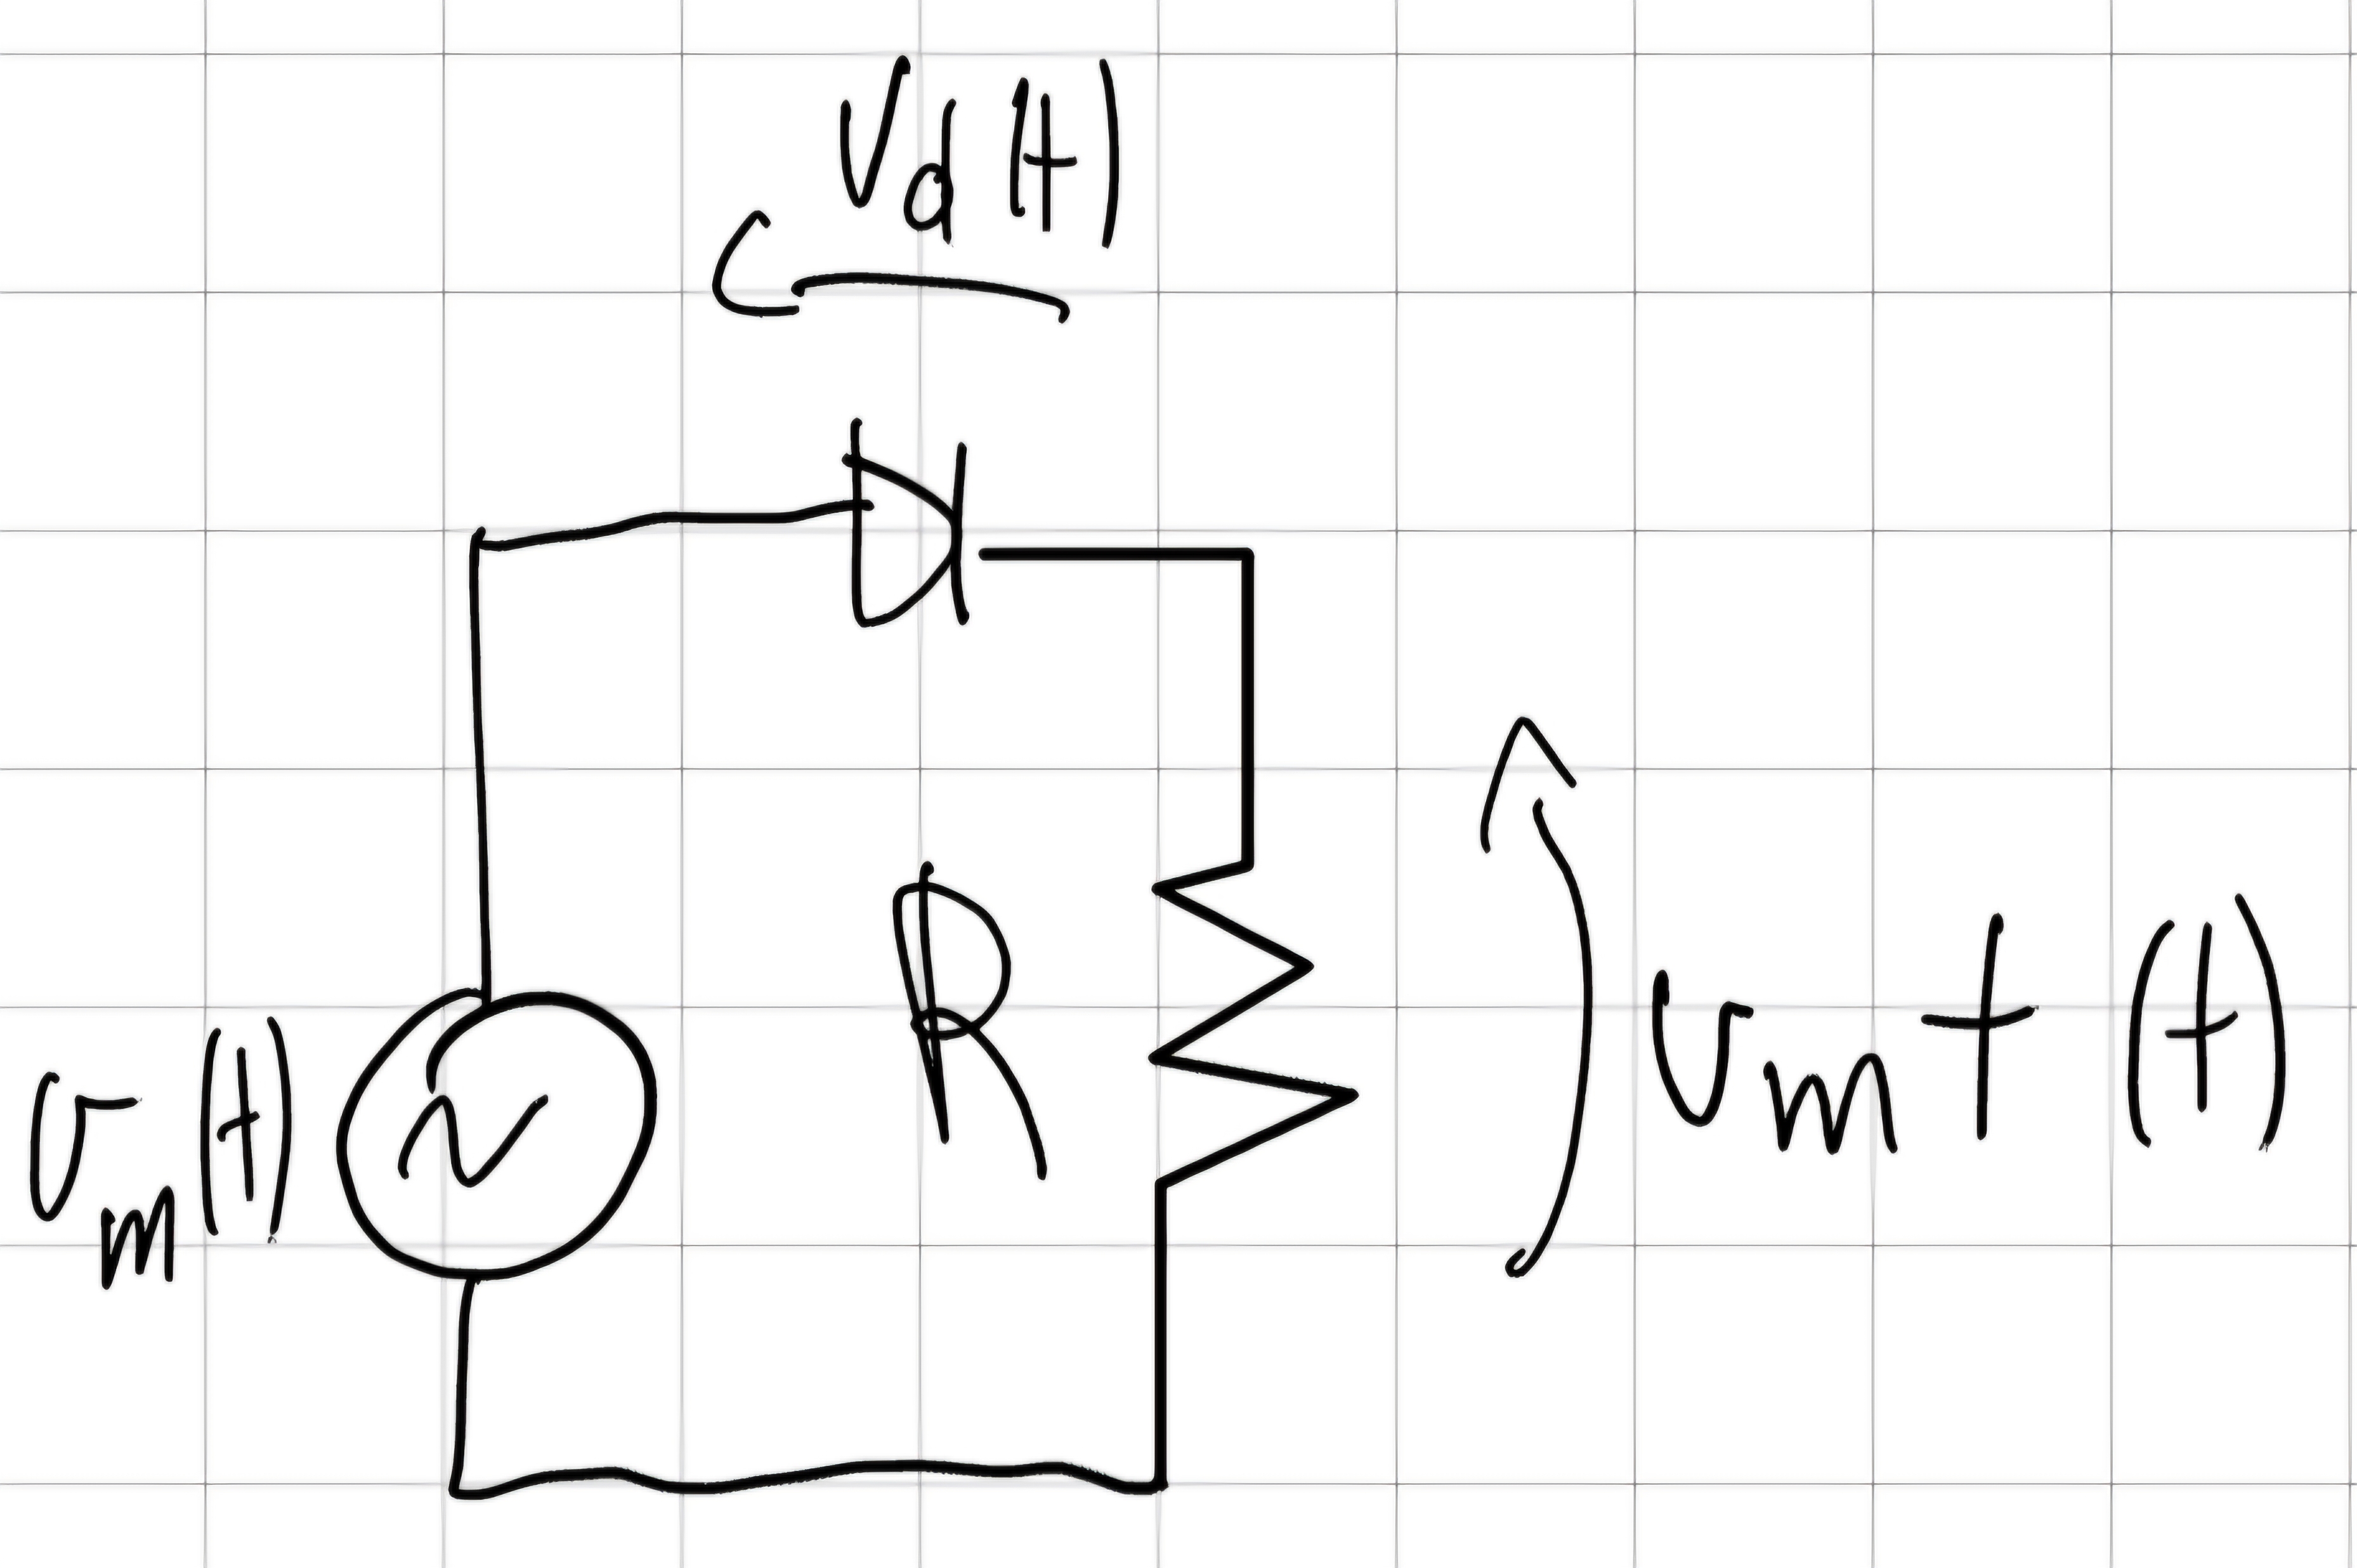 Vd(t)
R
vm(t)
vmt(t)